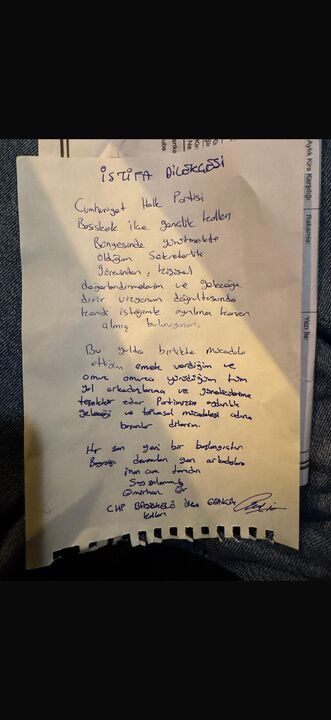 İSTİFA DİLEKÇESİ
Cumhuriyet Halk Partisi
Başiskele ilçe gençlik kolları
Bünyesinde yürütmekte
Olduğum Sekreterlik
görevinden, kişisel
değerlendirmelerim ve geleceğe
dair vizyonum doğrultusunda
kendi isteğimle ayrılma kararı
almış bulunuyorum.
Bu yolda birlikte mücadele
ettiğim emek verdiğim ve
omuz omuza yürüdüğüm tüm
yol arkadaşlarıma ve yöneticilerime
teşekkür eder Partimizin aydınlık
geleceği ve toplumsal mücadelesi adına
başarılar dilerim.
Her son yeni bir başlangıçtır
Bayrağı devralan yen arkadaşlara
inancım tamdır
Saygılarımla
Ömürhan
CHP BAŞİSKELE ilçe GENÇLİK
kolları
Aylık Kira Karşılığı
Rakamla:
Yazı ile